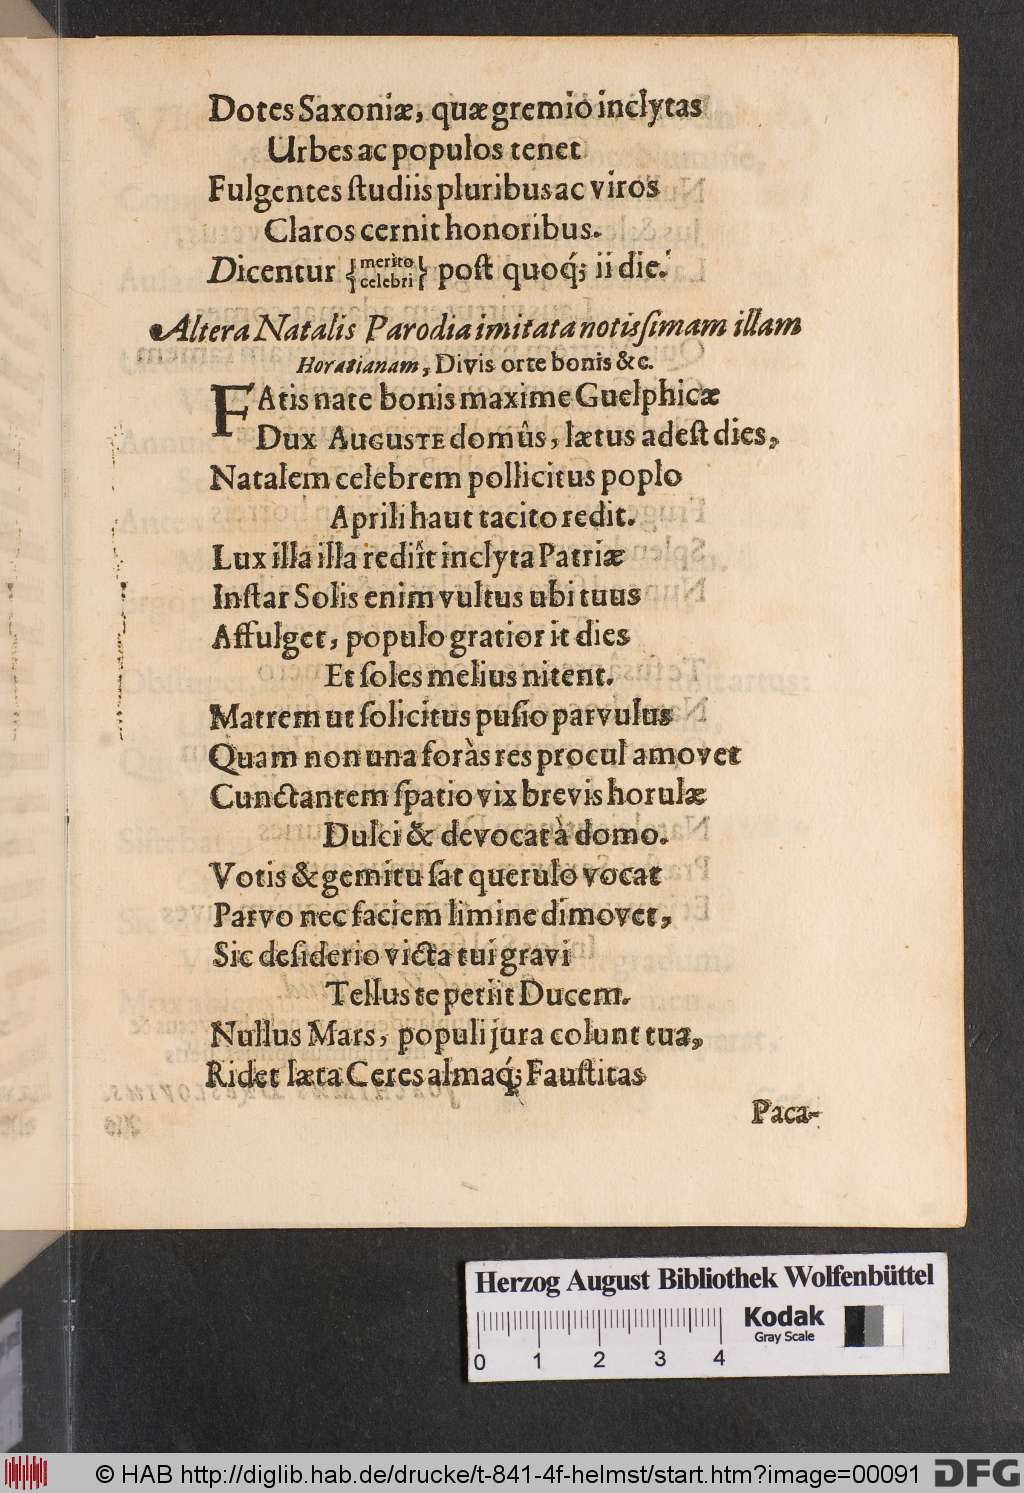 Dotes Saxoniæ, quæ gremio inclytas
Urbes ac populos tenet
Fulgentes ſtudiis pluribus ac viros
Claros cernit honoribus.
Dicentur {merito celebri} poſt quoq́; ii die.
Altera Natalis Parodia imitata notisſimam illam
Horatianam, Divis orte bonis &c.
FAtis nate bonis maxime Guelphicæ
Dux AUGUSTE domûs, lætus adeſt dies,
Natalem celebrem pollicitus poplo
Aprili haut tacito redit.
Lux illa illa rediit inclyta Patriæ
Inſtar Solis enim vultus ubi tuus
Affulget, populo gratior it dies
Et ſoles melius nitent.
Matrem ut ſolicitus puſio parvulus
Quam non una foràs res procul amovet
Cunctantem ſpatio vix brevis horulæ
Dulci & devocat à domo.
Votis & gemitu ſat querulo vocat
Parvo nec faciem limine dimovet,
Sic deſiderio victa tui gravi
Tellus te petiit Ducem.
Nullus Mars, populi jura colunt tua,
Ridet læta Ceres almaq́; Fauſtitas
Paca-
Herzog August Bibliothek Wolfenbüttel
Kodak
Gray Scale
0 1 2 3 4
© HAB http://diglib.hab.de/drucke/t-841-4f-helmst/start.htm?image=00091
DFG